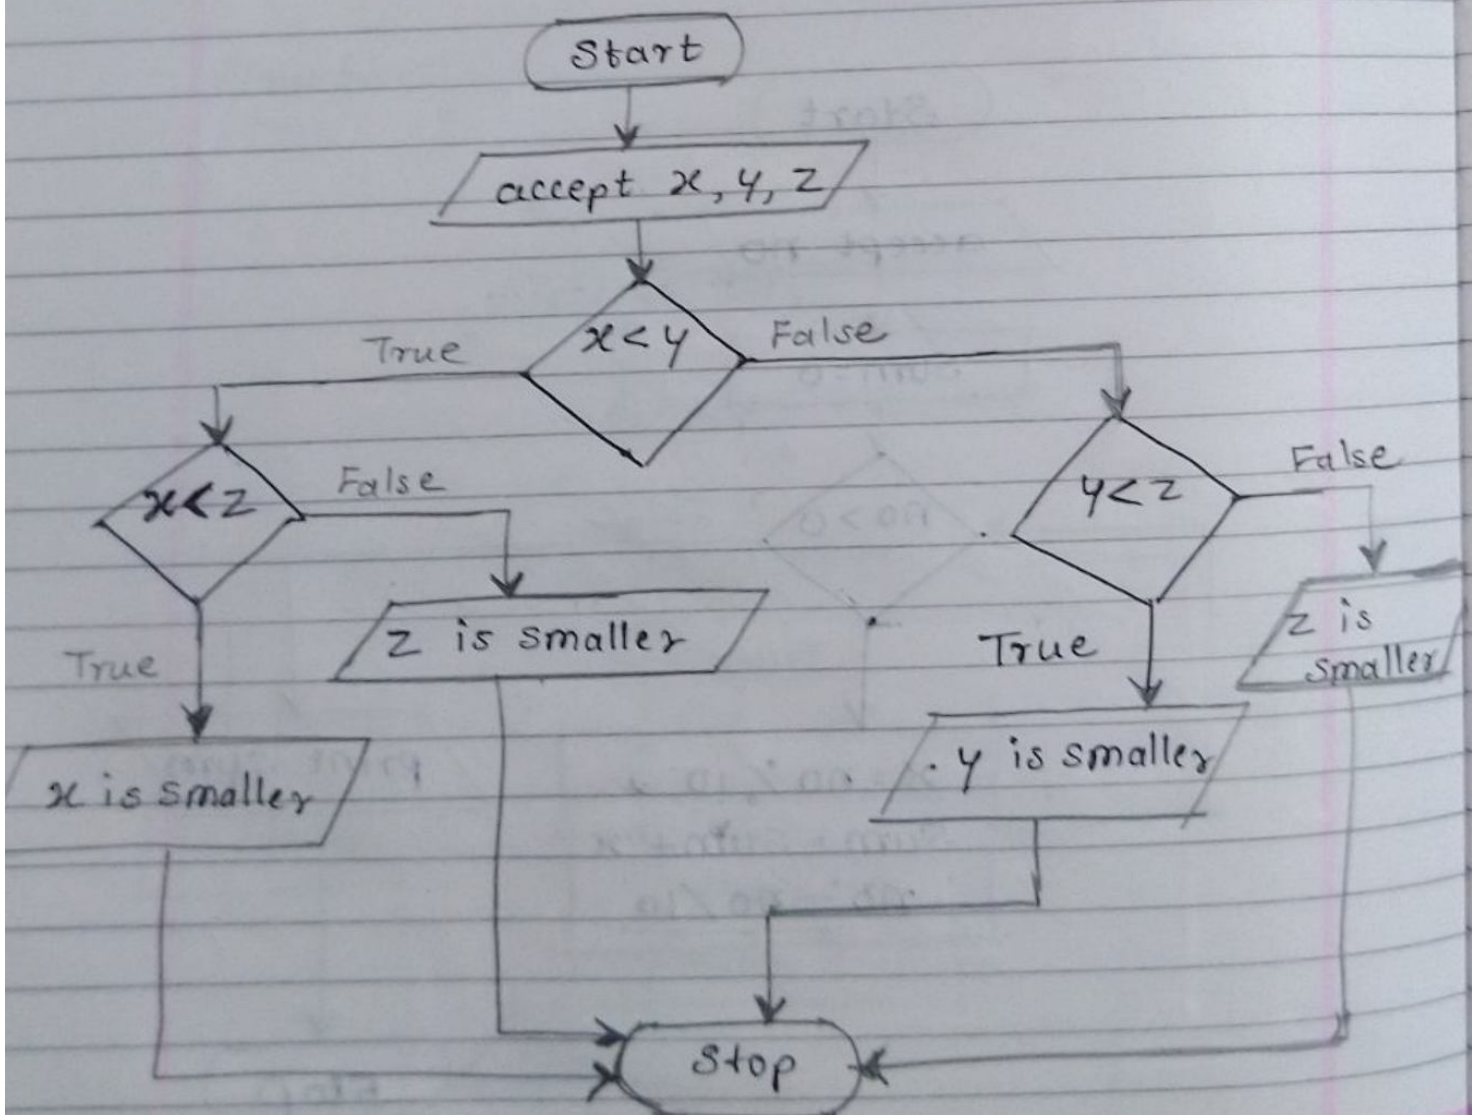 Start
accept x, y, z
x < y
True
False
x < z
False
y < z
False
z is smaller
True
z is
smaller
True
y is smaller
x is smaller
Stop